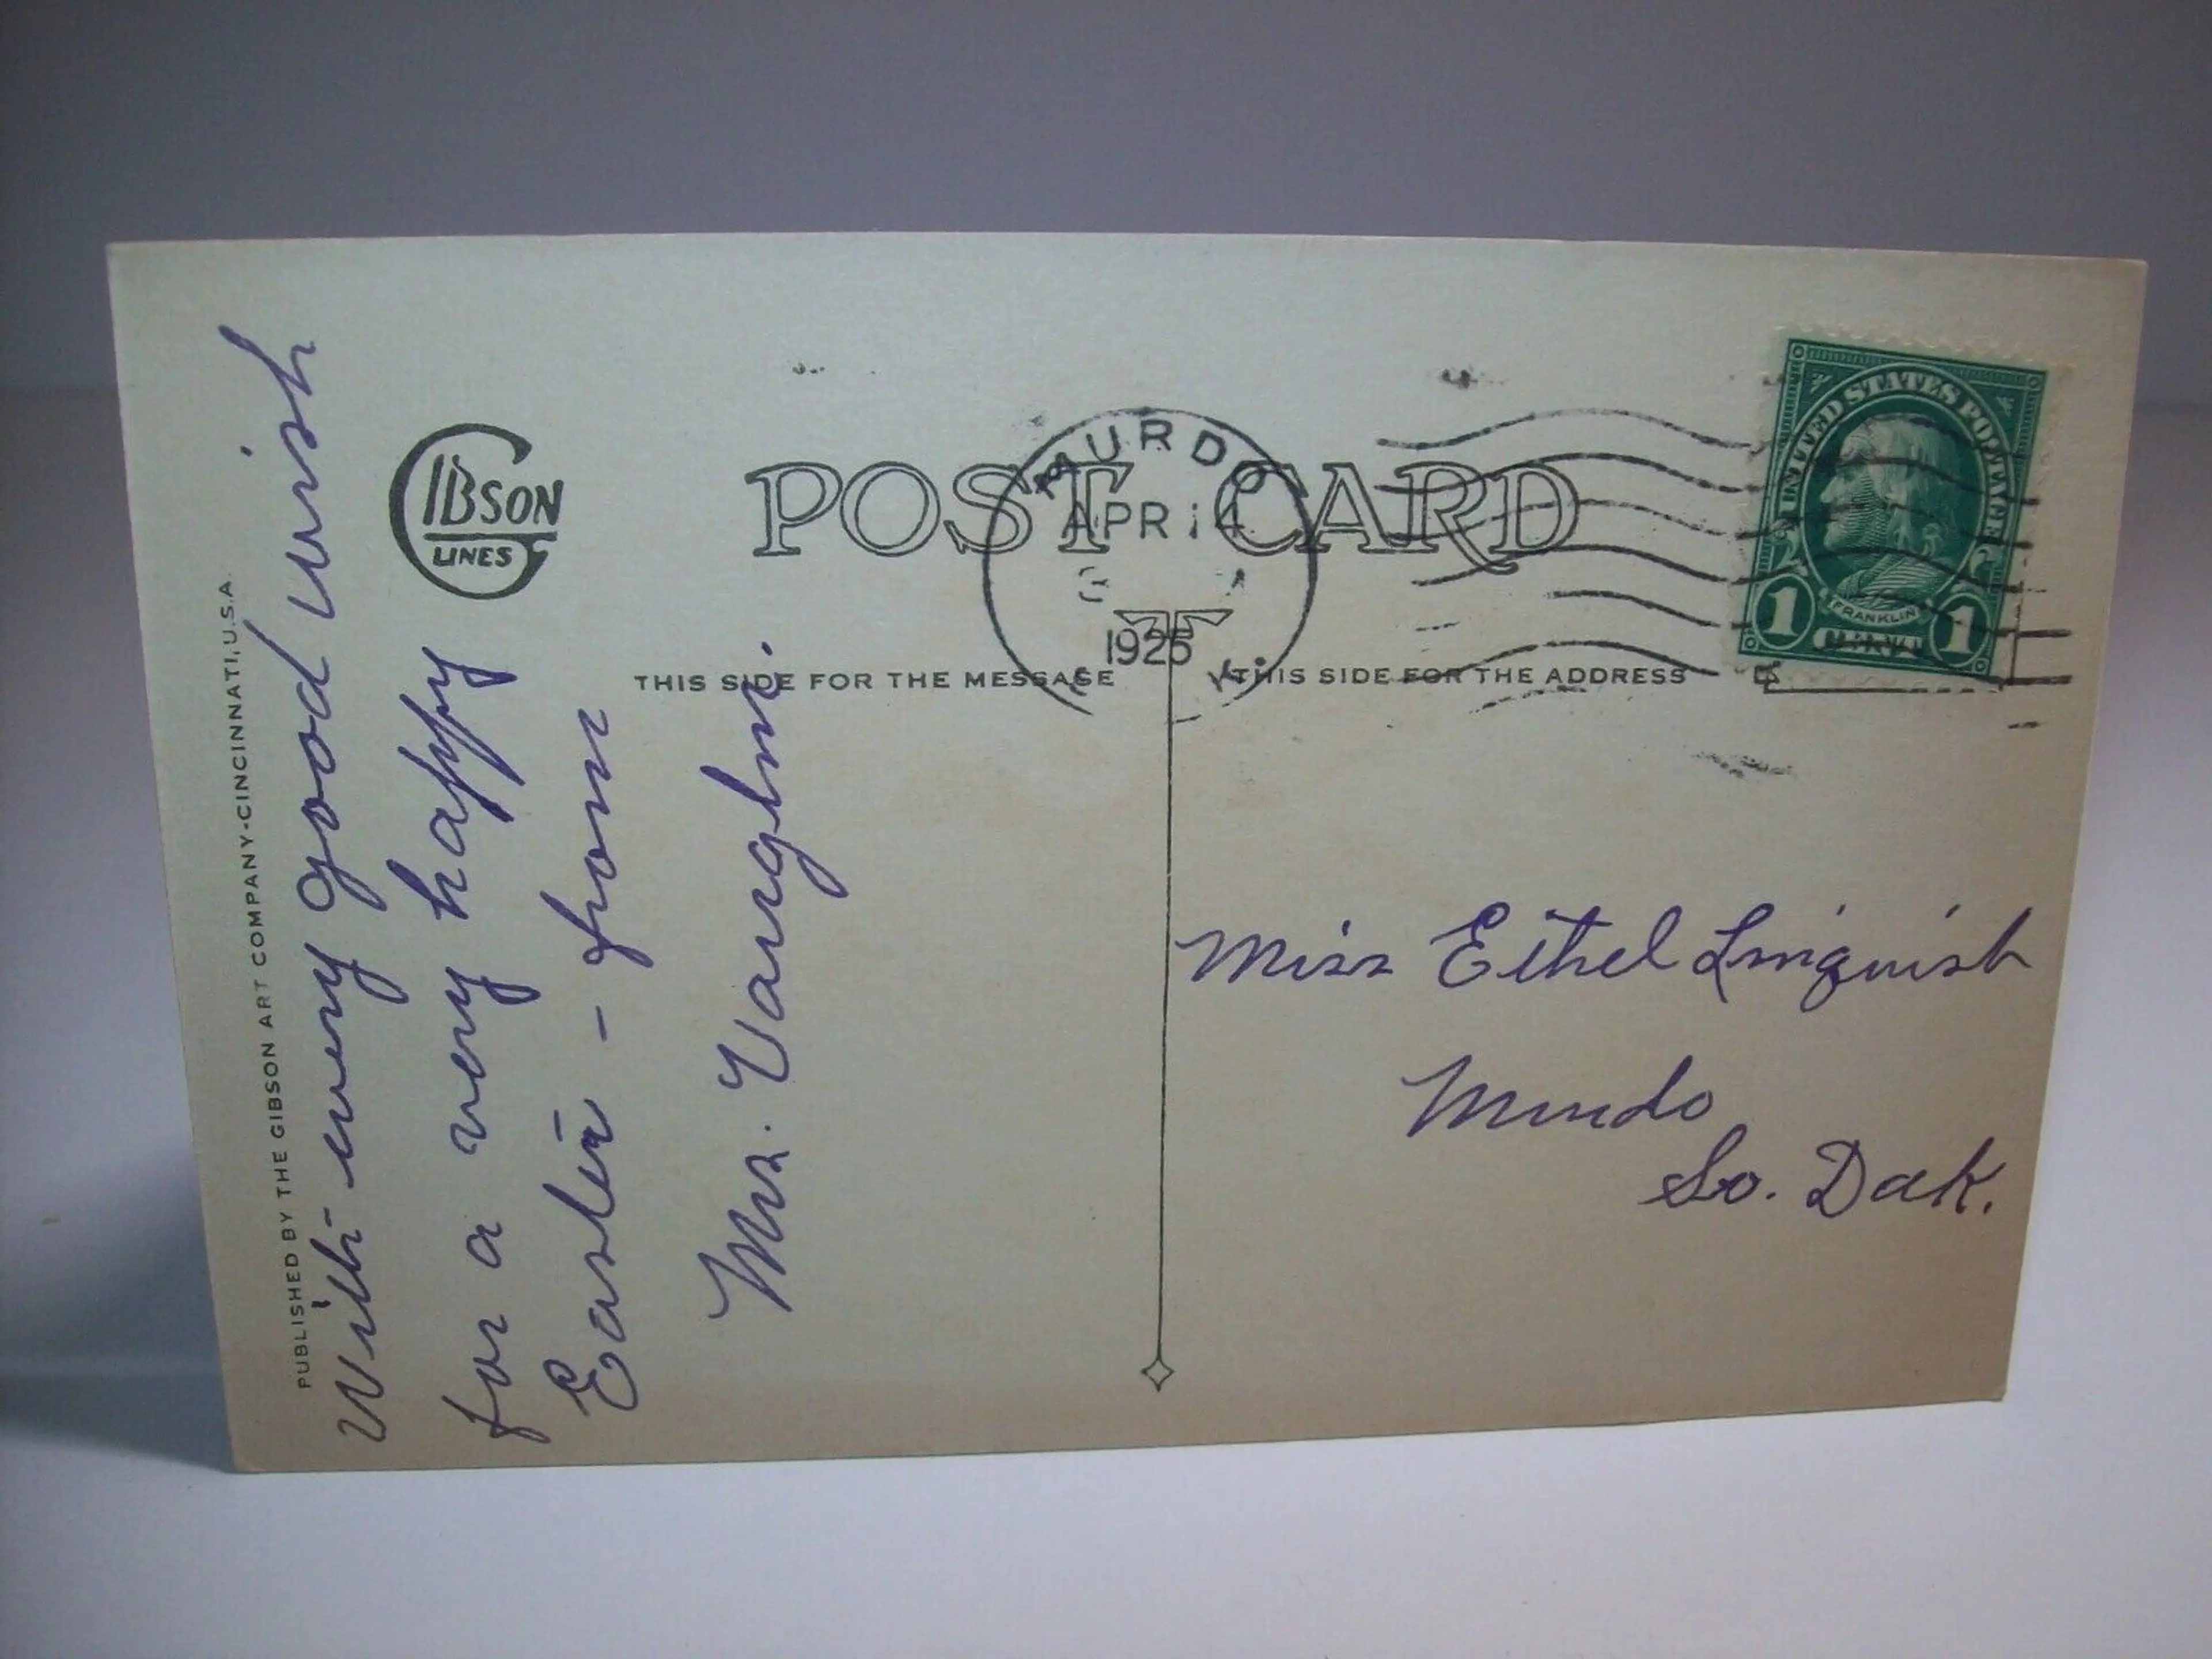 PUBLISHED BY THE GIBSON ART COMPANY-CINCINNATI, U.S.A.
With every good wish
for a very happy
Easter - from
Mrs. Vaughn.
GIBSON
LINES
POST CARD
MURDO
APR 14
1925
THIS SIDE FOR THE MESSAGE
THIS SIDE FOR THE ADDRESS
UNITED STATES POSTAGE
FRANKLIN
1 1
Miss Ethel Linquist
Murdo
So. Dak.